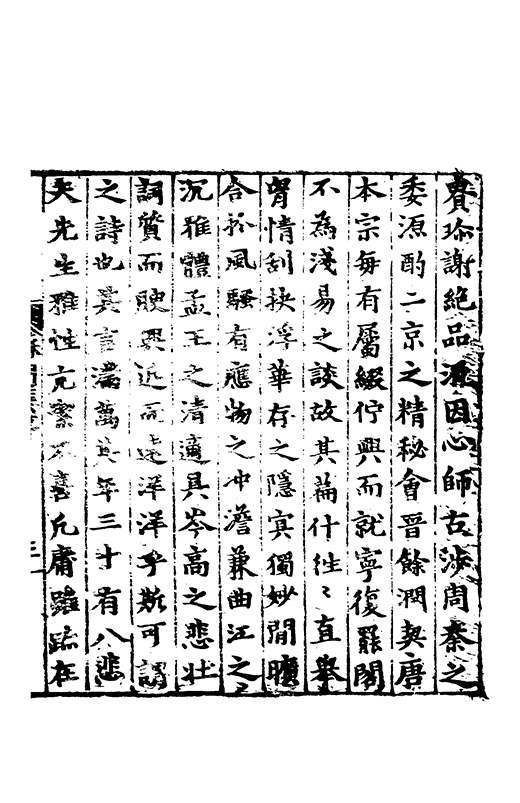 賁珎謝絶品源因心師古渉周秦之
委源酌二京之精秘會晋餘潤契唐
本宗每有屬綴佇興而就寧復罷閣
不為淺易之談故其篇什徃〻直舉
胷情刮抉浮華存之隱冥獨妙閒曠
合於風騷有應物之冲澹兼曲江之
沉雅體孟王之清適具岑高之悲壯
詞質而腴興近而遠洋洋乎斯可謂
之詩也其言滿萬其年三十有八悲
夫先生雅性亢潔不喜凡庸雖踈在